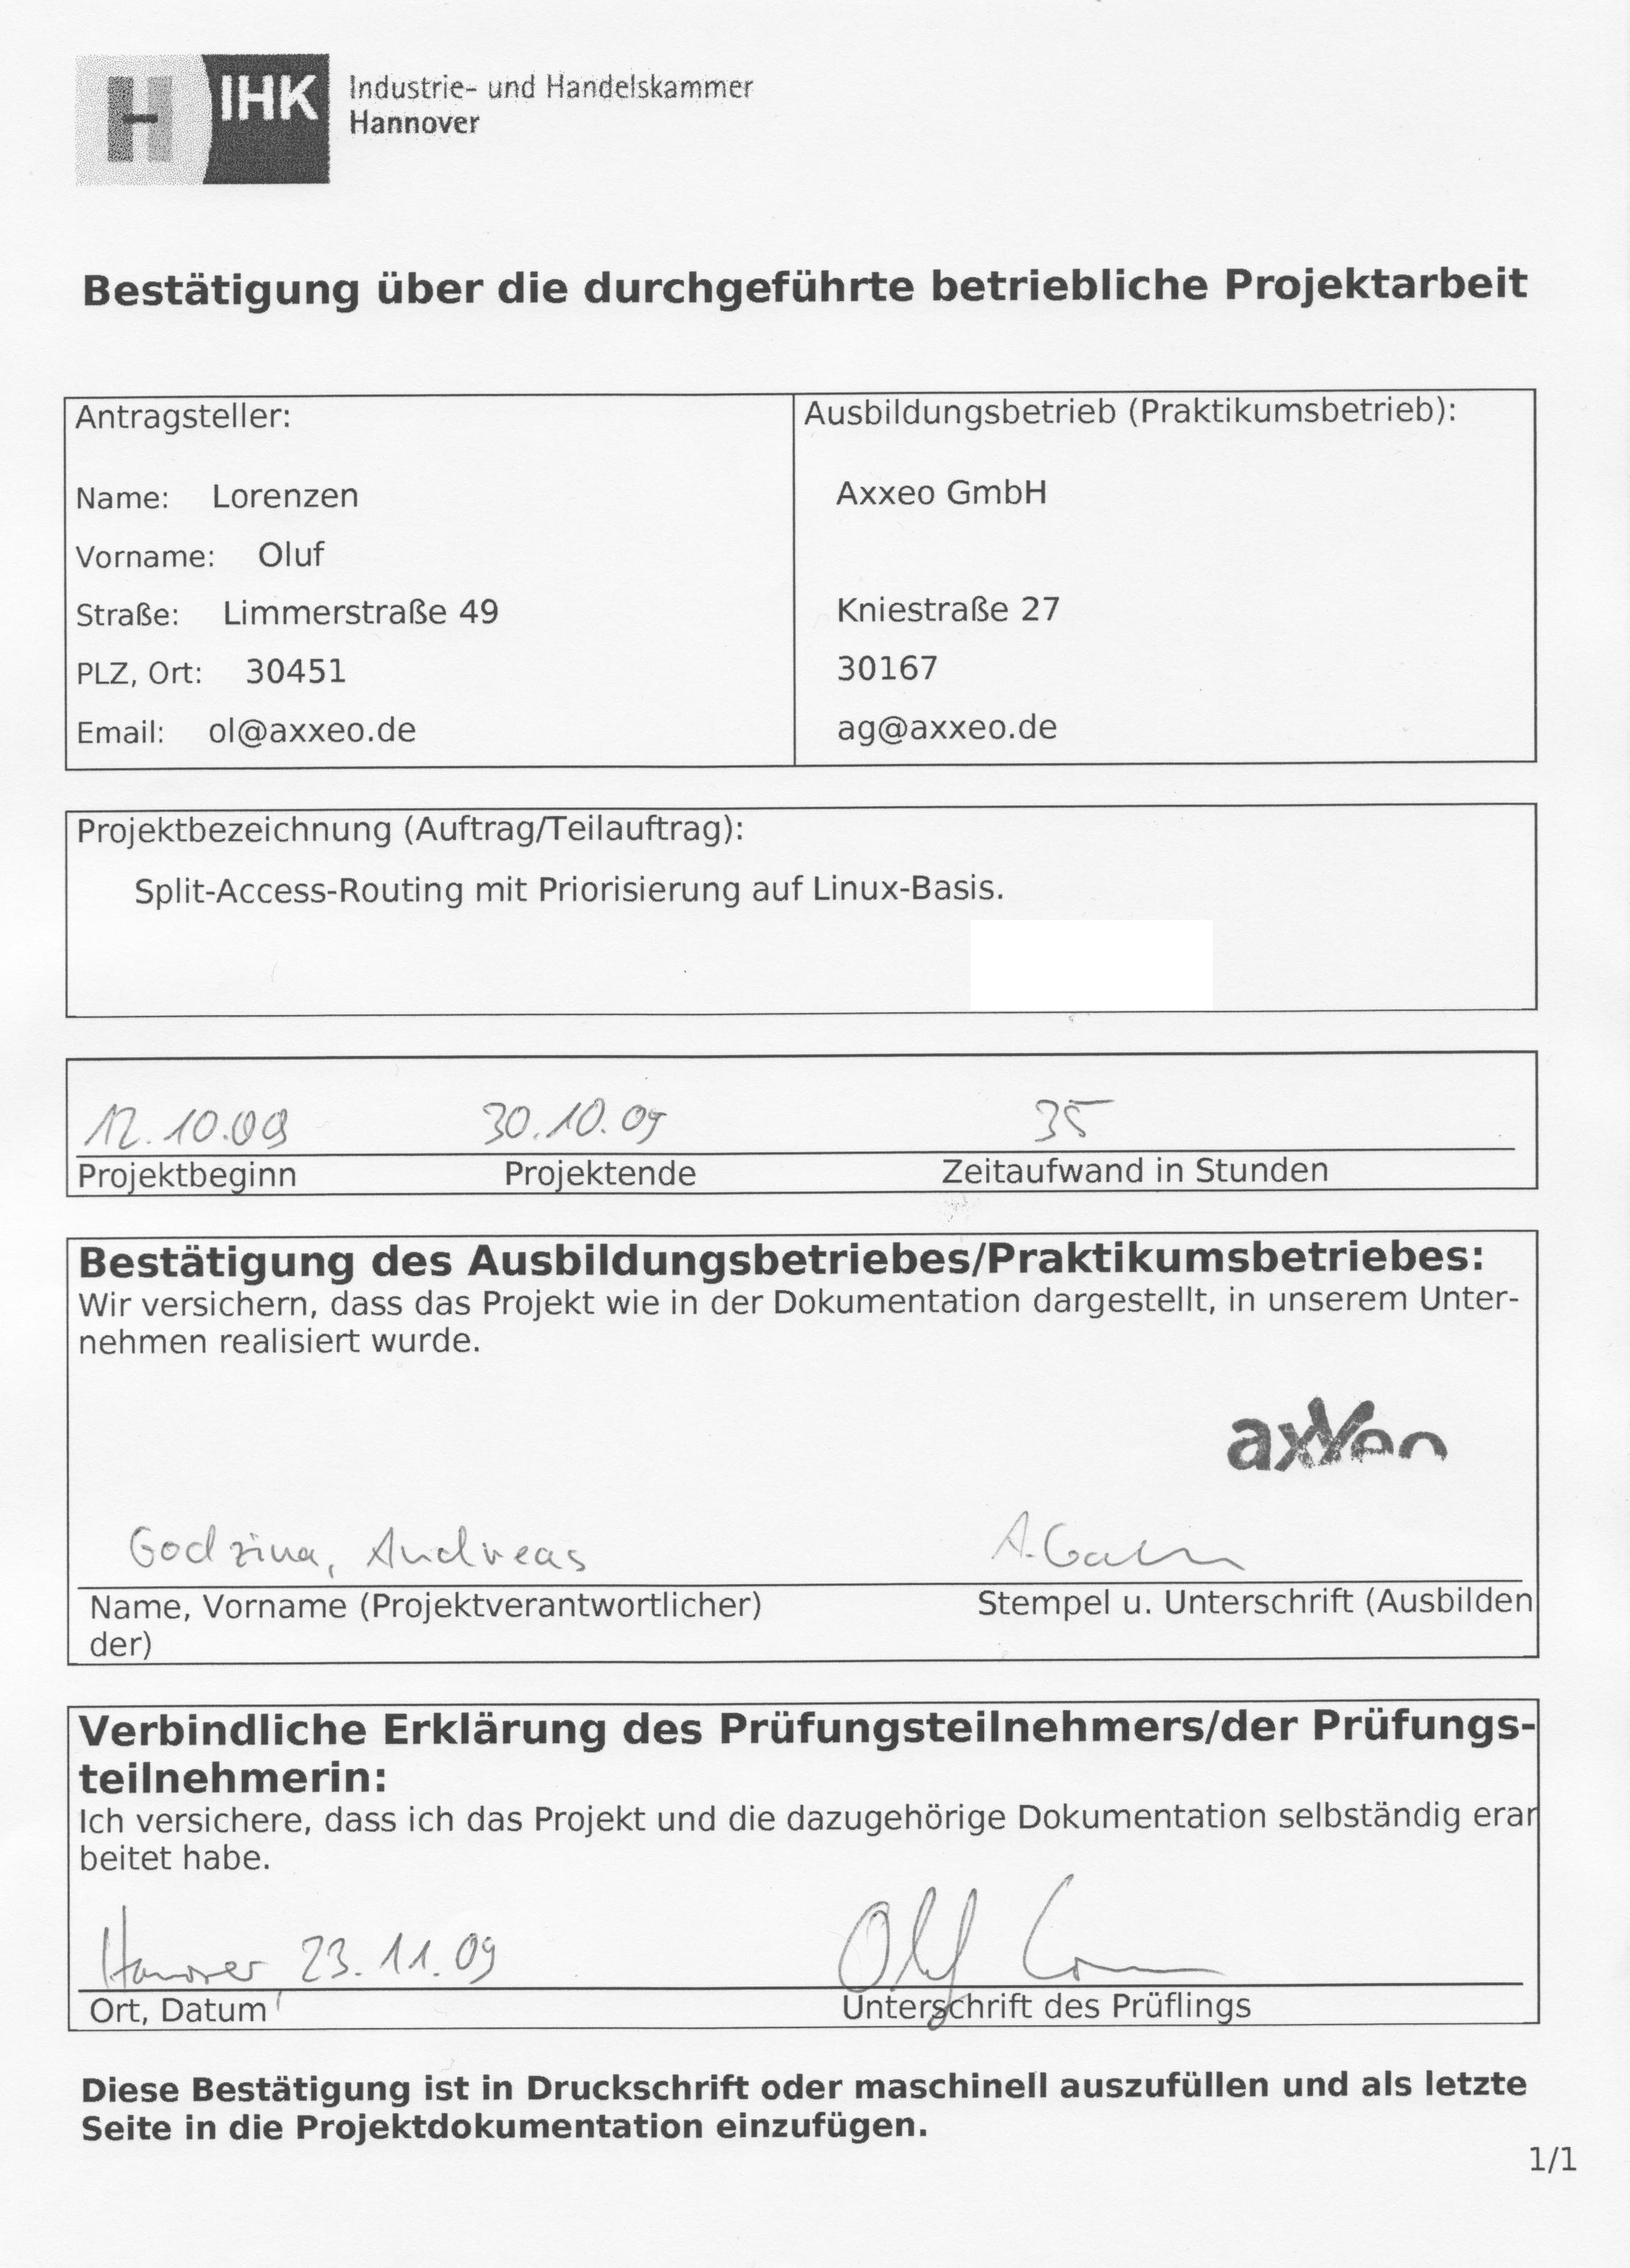 H IHK Industrie- und Handelskammer
Hannover
Bestätigung über die durchgeführte betriebliche Projektarbeit
Antragsteller:
Name: Lorenzen
Vorname: Oluf
Straße: Limmerstraße 49
PLZ, Ort: 30451
Email: ol@axxeo.de
Ausbildungsbetrieb (Praktikumsbetrieb):
Axxeo GmbH
Kniestraße 27
30167
ag@axxeo.de
Projektbezeichnung (Auftrag/Teilauftrag):
Split-Access-Routing mit Priorisierung auf Linux-Basis.
12.10.09 30.10.09 35
Projektbeginn Projektende Zeitaufwand in Stunden
Bestätigung des Ausbildungsbetriebes/Praktikumsbetriebes:
Wir versichern, dass das Projekt wie in der Dokumentation dargestellt, in unserem Unter-
nehmen realisiert wurde.
axxeo
Godzina, Andreas A.
Name, Vorname (Projektverantwortlicher) Stempel u. Unterschrift (Ausbilden
der)
Verbindliche Erklärung des Prüfungsteilnehmers/der Prüfungs-
teilnehmerin:
Ich versichere, dass ich das Projekt und die dazugehörige Dokumentation selbständig erar
beitet habe.
Hannover 23.11.09
Ort, Datum Unterschrift des Prüflings
Diese Bestätigung ist in Druckschrift oder maschinell auszufüllen und als letzte
Seite in die Projektdokumentation einzufügen.
1/1